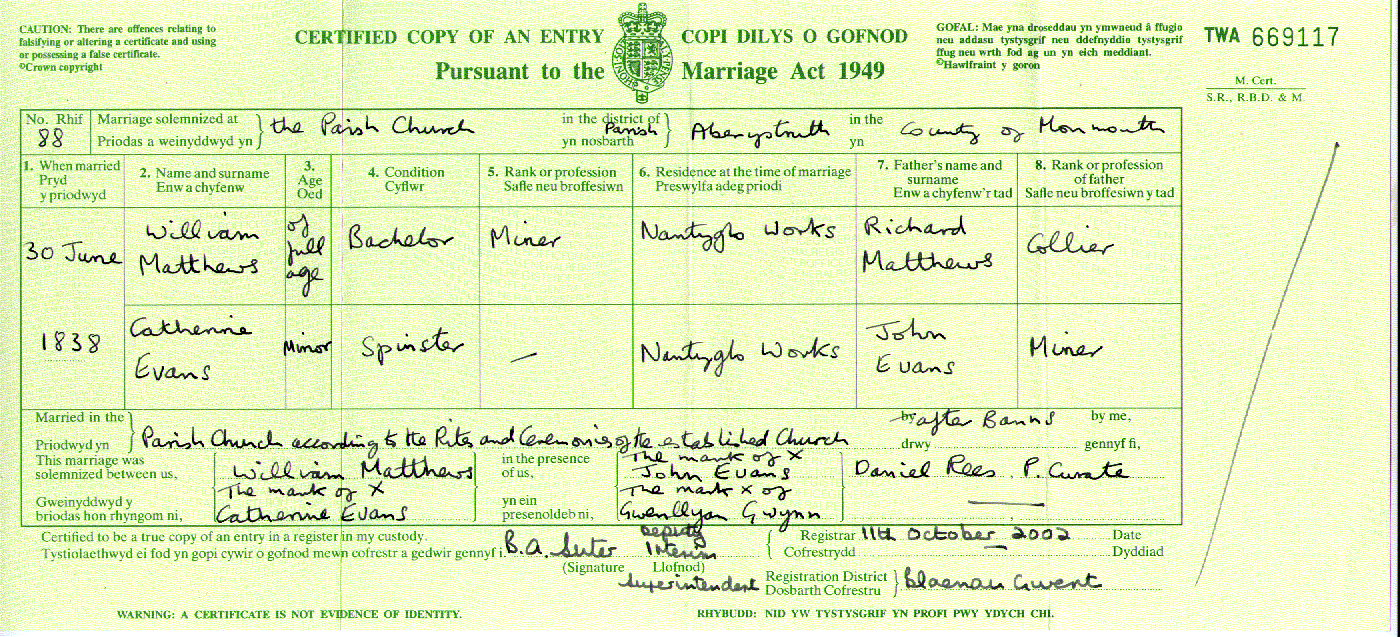 CAUTION: There are offences relating to
falsifying or altering a certificate and using
or possessing a false certificate.
©Crown copyright
CERTIFIED COPY OF AN ENTRY
Pursuant to the
COPI DILYS O GOFNOD
Marriage Act 1949
GOFAL: Mae yna droseddau yn ymwneud â ffugio
neu addasu tystysgrif neu ddefnyddio tystysgrif
ffug neu wrth fod ag un yn eich meddiant.
©Hawlfraint y goron
TWA 669117
M. Cert.
S.R., R.B.D. & M.
No. Rhif
88
Marriage solemnized at
Priodas a weinyddwyd yn
the Parish Church
in the district of
Parish
yn nosbarth
Aberystruth
in the
yn
County of Monmouth
1. When married
Pryd
y priodwyd
2. Name and surname
Enw a chyfenw
3.
Age
Oed
4. Condition
Cyflwr
5. Rank or profession
Safle neu broffesiwn
6. Residence at the time of marriage
Preswylfa adeg priodi
7. Father's name and
surname
Enw a chyfenw'r tad
8. Rank or profession
of father
Safle neu broffesiwn y tad
30 June
William
Matthews
of
full
age
Bachelor
Miner
Nantyglo Works
Richard
Matthews
Collier
1838
Catherine
Evans
Minor
Spinster
—
Nantyglo Works
John
Evans
Miner
Married in the
Priodwyd yn
Parish Church according to the Rites and Ceremonies of the established Church
by after Banns
drwy
by me,
gennyf fi,
This marriage was
solemnized between us,
Gweinyddwyd y
briodas hon rhyngom ni,
William Matthews
The mark of X
Catherine Evans
in the presence
of us,
yn ein
presenoldeb ni,
The mark of X
John Evans
The mark X of
Gwenllyan Gwynn
Daniel Rees, P. Curate
Certified to be a true copy of an entry in a register in my custody.
Tystiolaethwyd ei fod yn gopi cywir o gofnod mewn cofrestr a gedwir gennyf i.
B.A. Suter
Deputy
Interim
Superintendent
(Signature
Llofnod)
Registrar
Cofrestrydd
11th October 2002
Date
Dyddiad
Registration District
Dosbarth Cofrestru
Blaenau Gwent
WARNING: A CERTIFICATE IS NOT EVIDENCE OF IDENTITY.
RHYBUDD: NID YW TYSTYSGRIF YN PROFI PWY YDYCH CHI.